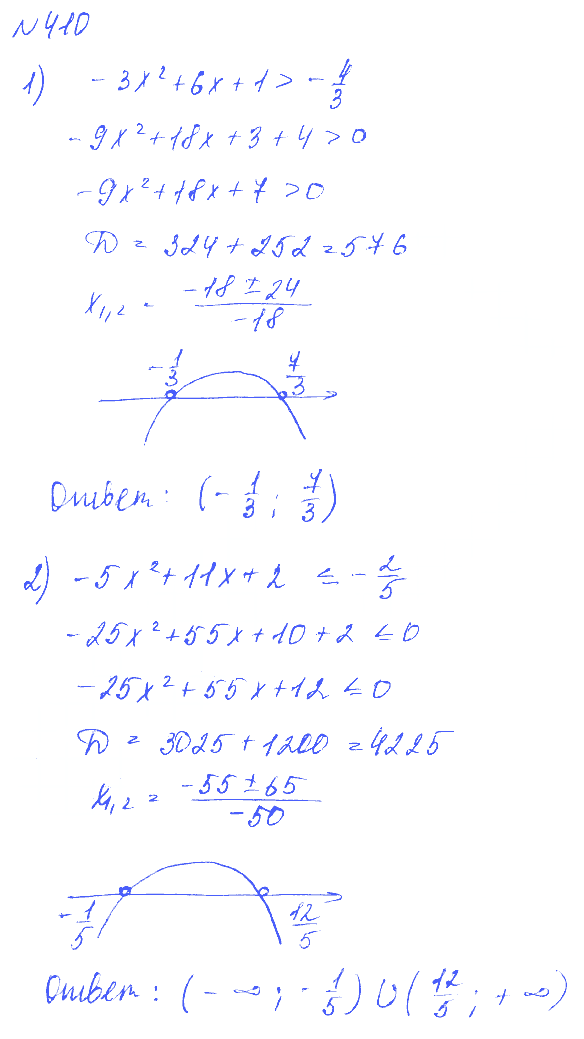 N 410
1) -3x²+6x+1 > -4/3
-9x²+18x+3+4>0
-9x²+18x+7>0
D = 324+252=576
x₁,₂ = (-18 ± 24)/(-18)
-1/3 7/3
Ответ: (-1/3; 7/3)
2) -5x²+11x+2 ≤ -2/5
-25x²+55x+10+2 ≤0
-25x²+55x+12 ≤0
D = 3025+1200=4225
x₁,₂ = (-55 ± 65)/(-50)
-1/5 12/5
Ответ: (-∞; -1/5) ∪ (12/5; +∞)